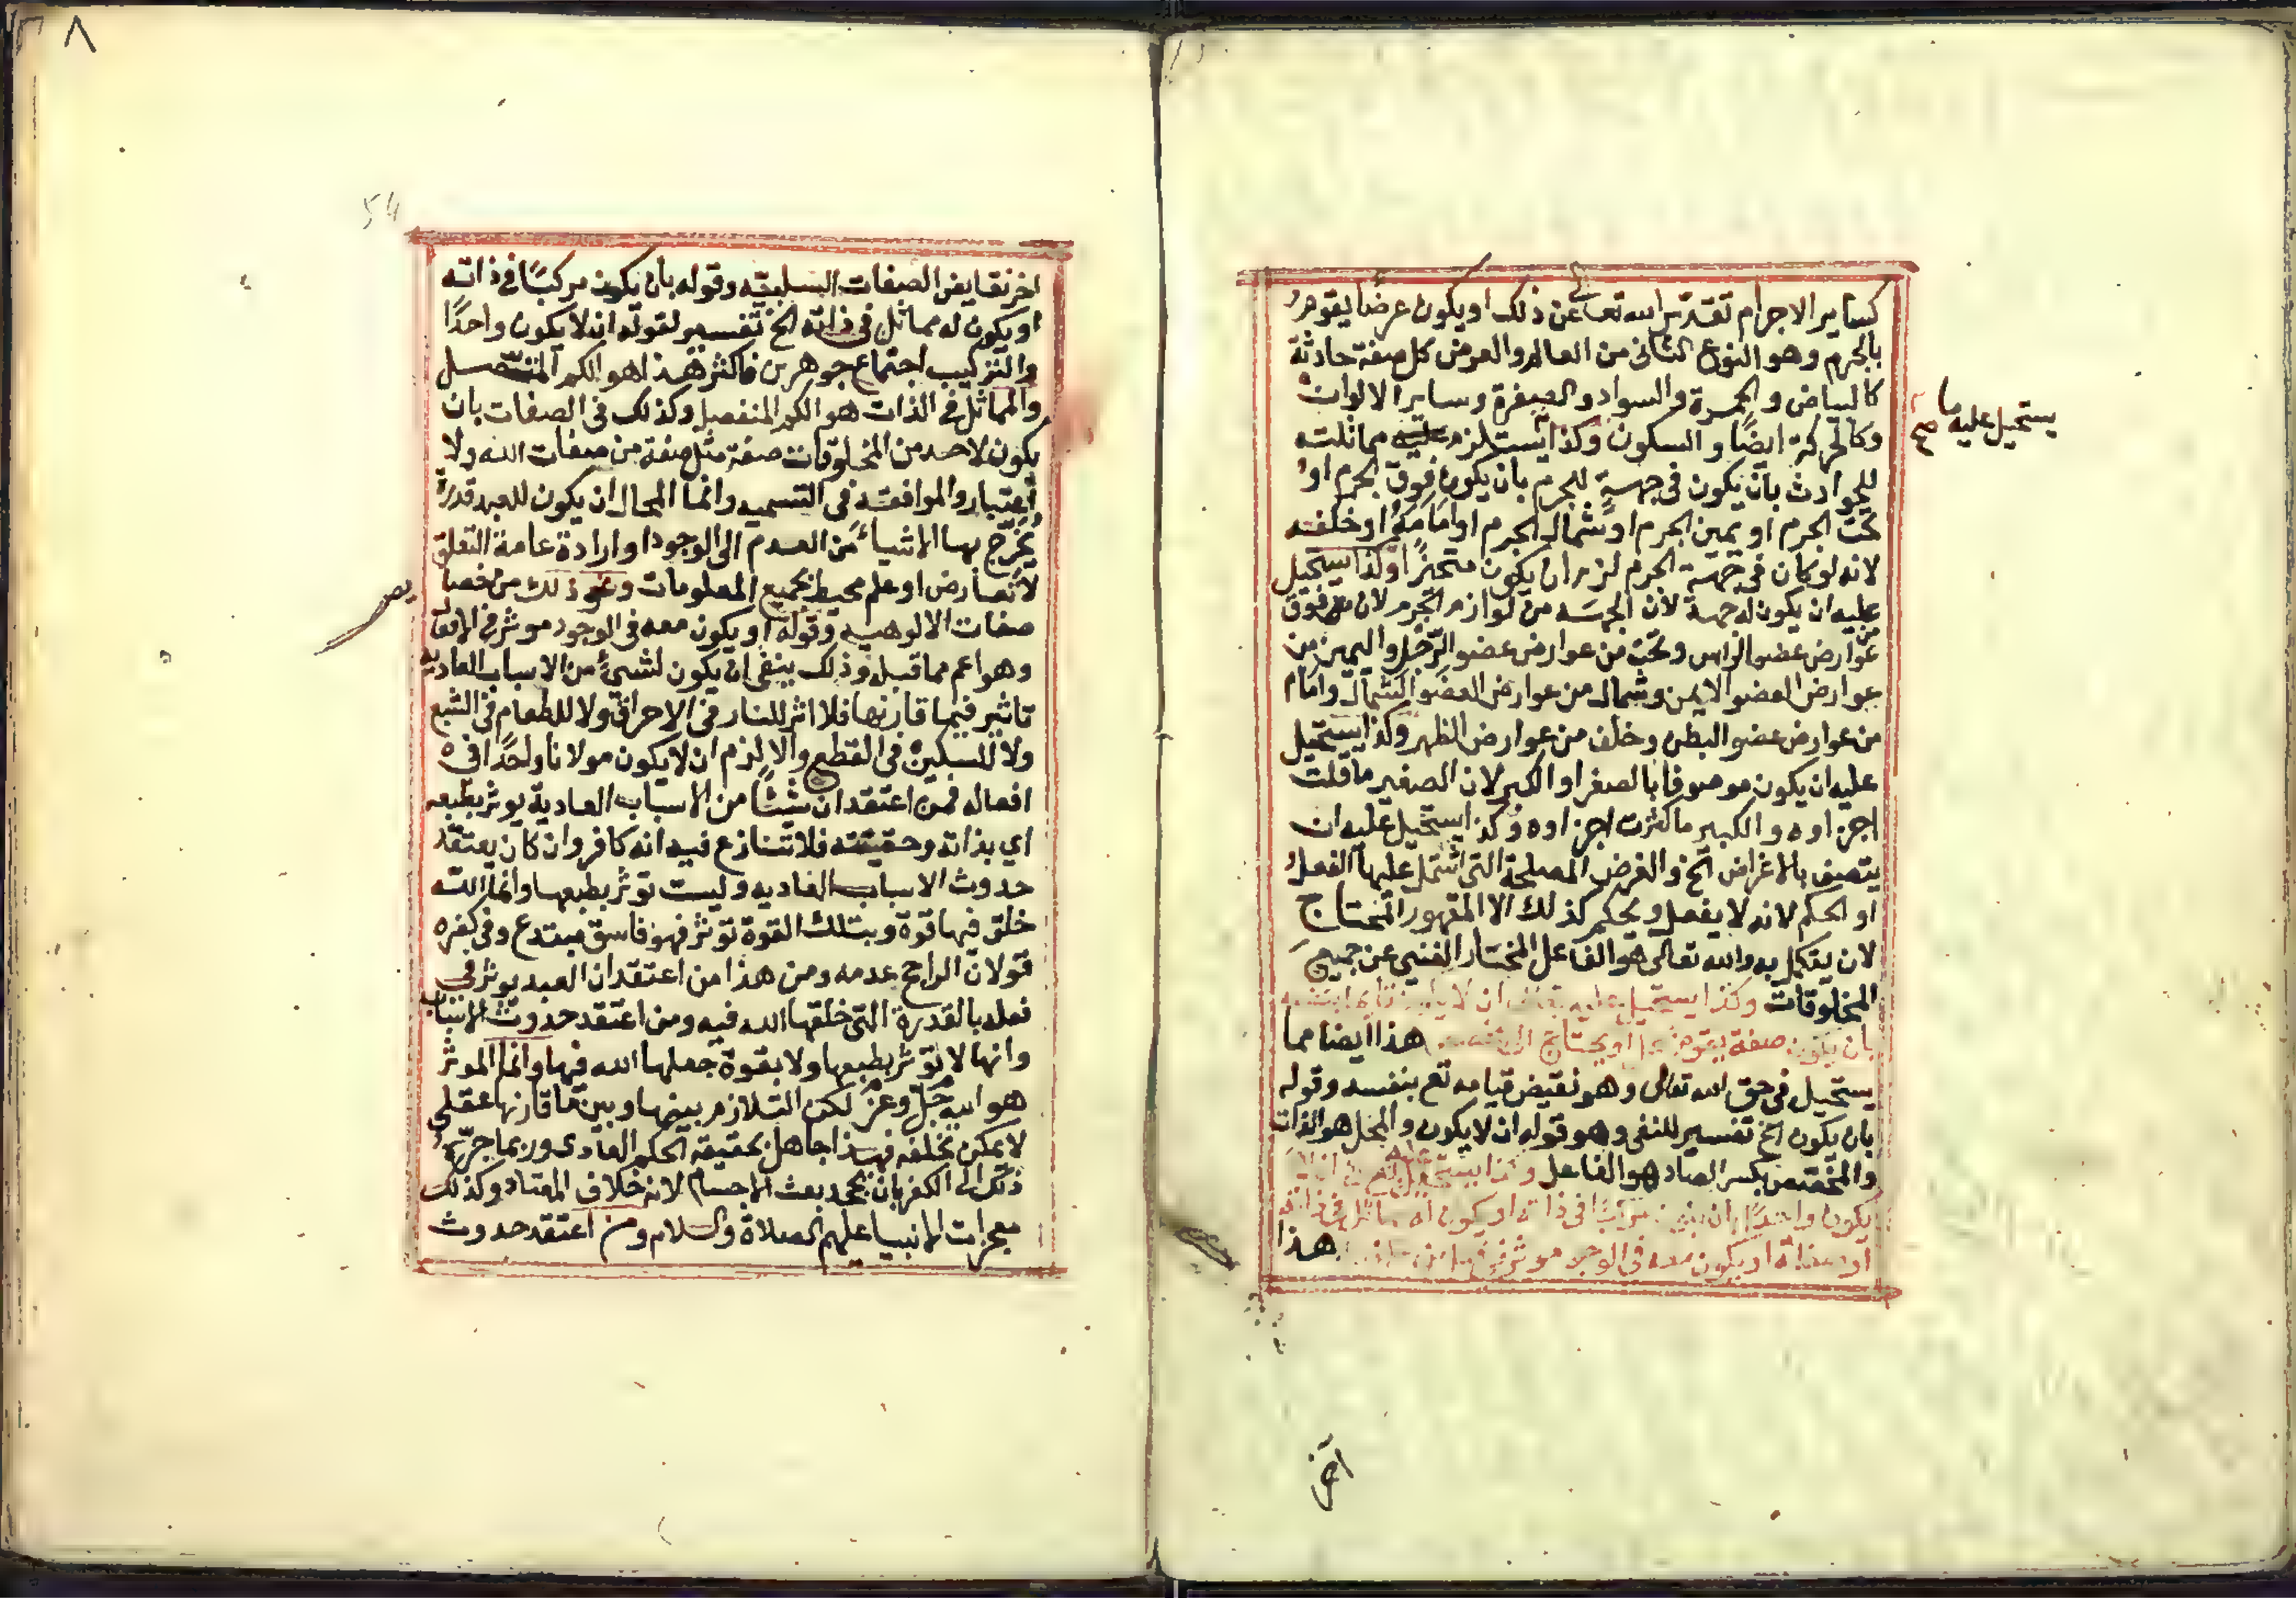 كساير الاجرام تقدس الله تعالى عن ذلك او يكون عرضا يقوم
بالجرم وهو النوع الثانى من العالم والعرض كل صفة حادثة
كالبياض والحمرة والسواد والصفرة وساير الالوان
وكالحركة ايضًا والسكون وكذا يستلزم عليه مماثلته
يستحيل عليه ما
صح
للحوادث بان يكون فى جهة للجرم بان يكون فوق الجرم او
تحت الجرم او يمين الجرم او شمال الجرم او امامه او خلفه
لانه لو كان فى جهة الجرم لزم ان يكون متحيزًا وكذا يستحيل
عليه ان يكون له جهة لان الجهة من لوازم الجرم لان فوق
من عوارض عضو الراس وتحت من عوارض عضو الرّجل واليمين من
عوارض العضو الايمن وشمال من عوارض العضو الشمال وامام
من عوارض عضو البطن وخلف من عوارض الظهر وكذا يستحيل
عليه ان يكون موصوفا بالصغر او الكبر لان الصغير ما قلت
اجزاوه والكبير ما كثرت اجزاوه وكذا يستحيل عليه ان
يتصف بالاغراض الخ والغرض المصلحة التى اشتمل عليها الفعل
او الحكم لانه لا يفعل ويحكم كذلك الا المقهور المحتاج
لان يتكمل به والله تعالى هو الفاعل المختار الغنى عن جميع
المخلوقات وكذا يستحيل عليه تعالى ان لا يكون قايما بنفسه
بان يكون صفة يقوم بمحل او يحتاج الى مخصص هذا ايضا مما
يستحيل فى حق الله تعالى وهو نقيض قيامه تع بنفسه وقوله
بان يكون الخ تفسير للنفى وهو قوله ان لا يكون والمحل هو الذات
والمخصص بكسر الصاد هو الفاعل وكذا يستحيل عليه تعالى ان لا
يكون واحدًا بان يكون مركبًا فى ذاته او يكون له مماثل فى ذاته
او صفاته او يكون معه فى الوجود موثر فى فعل من الافعال هذا
آخر
٨
54
اخر نقايض الصفات السلبية وقوله بان يكون مركبًا فى ذاته
او يكون له مماثل فى ذاته الخ تفسير لقوله ان لا يكون واحدًا
والتركيب اجتماع جوهرين فاكثر هذا هو الكم المتصل
والمماثل فى الذات هو الكم المنفصل وكذلك فى الصفات بان
يكون لاحد من المخلوقات صفة مثل صفة من صفات الله ولا
اعتبار والموافقة فى التسميه وانما المحال ان يكون للعبد قدرة
يُخرج بها الاشياء من العدم الى الوجود او ارادة عامة التعلق
لا تعارض او علم محيط بجميع المعلومات ونحو ذلك من خصا
يص
صفات الالوهيه وقوله او يكون معه فى الوجود موثر فى الافعال
وهو اعم مما قبله وذلك ينفى ان يكون لشىءٍ من الاسباب العاديه
تاثير فيما قارنها فلا اثر للنار فى الاحراق ولا للطعام فى الشبع
ولا للسكين فى القطع والا لزم ان لا يكون مولانا واحدًا فى
افعاله فمن اعتقد ان شيئًا من الاسباب العادية يوثر بطبعه
اي بذاته وحقيقته فلا تنازع فيه انه كافر وان كان يعتقد
حدوث الاسباب العاديه وليست توثر بطبعها وانما الله
خلق فيها قوة وبتلك القوة توثر فهو فاسق مبتدع وفى كفره
قولان الراجح عدمه ومن هذا من اعتقد ان العبد يوثر فى
فعله بالقدرة التى خلقها الله فيه ومن اعتقد حدوث الاسباب
وانها لا توثر بطبعها ولا بقوة جعلها الله فيها وانما الموثر
هو الله جلّ وعزّ لكن التلازم بينها وبين ما قارنها عقلى
لا يمكن تخلفه فهذا جاهل بحقيقة الحكم العادى وربما جرّه
ذلك الى الكفر بان يجحد بعث الاجسام لانه خلاف المعتاد وكذلك
معجزات الانبيا عليهم الصلاة والسلام ومن اعتقد حدوث